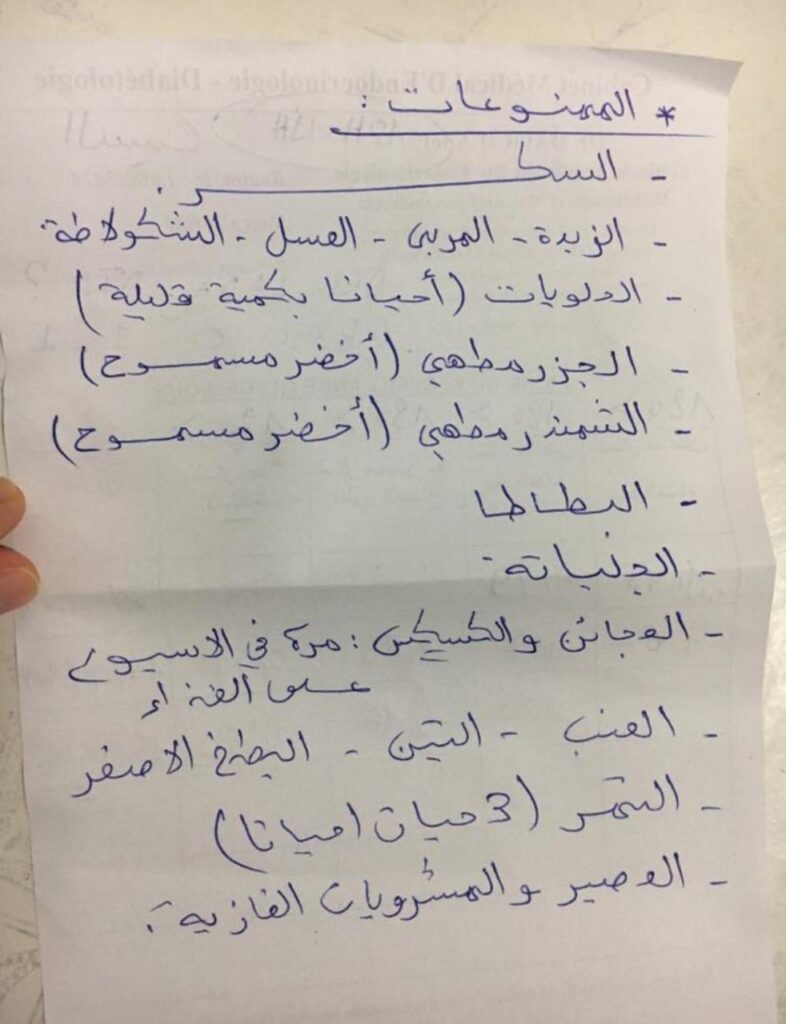 * الممنوعات :
- السكر.
- الزبدة - المربى - العسل - الشكولاطة
- الحلويات (أحيانا بكمية قليلة)
- الجزر مطهي (أخضر مسموح)
- الشمندر مطهي (أخضر مسموح)
- البطاطا
- الجلبانة
- العجائن والكسكس : مرة في الاسبوع
على الغذاء
- العنب - التين - البطيخ الاصفر
- التمر (3 حبات احيانا)
- العصير والمشروبات الغازية.
Cabinet Médical D'Endocrinologie - Diabétologie